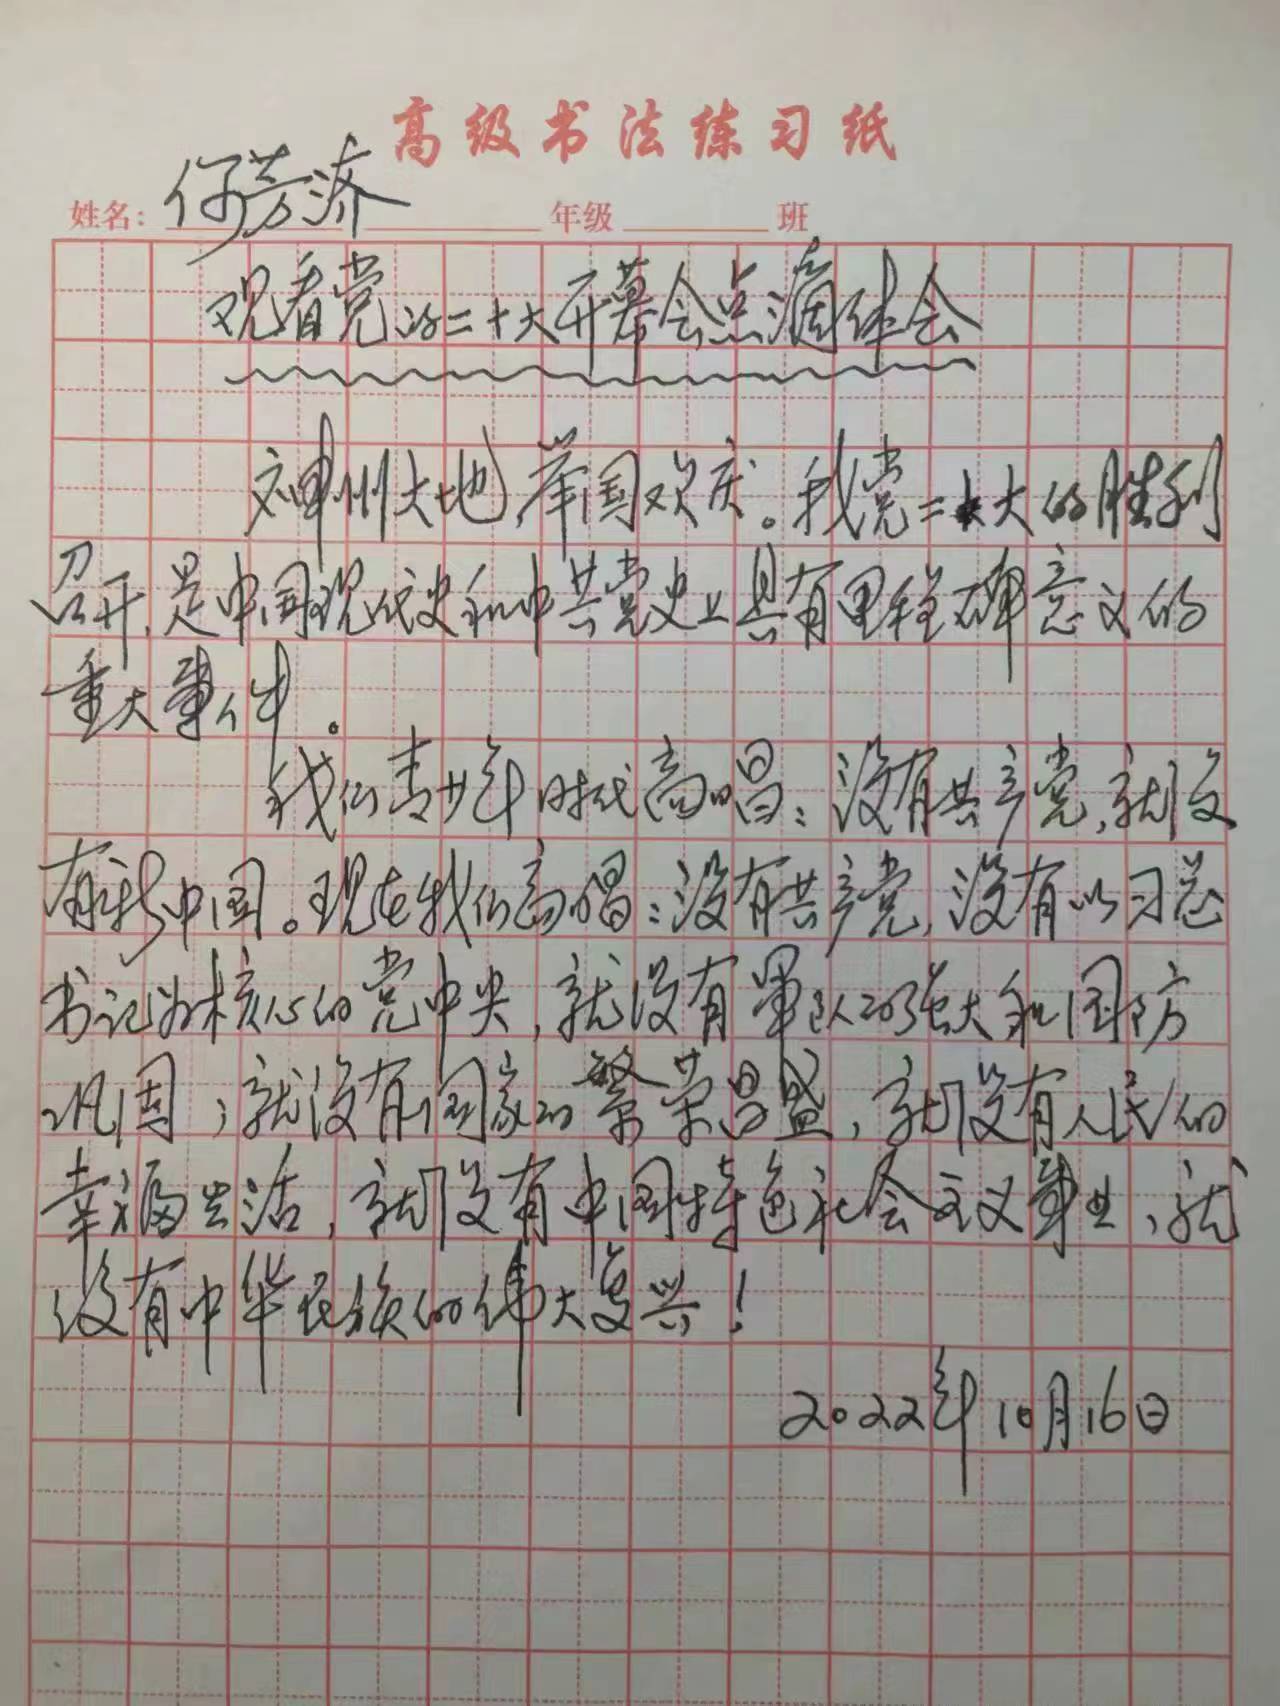 高级书法练习纸
姓名：何芳济 年级 班
观看党的二十大开幕会点滴体会
神州大地，举国欢庆。我党二十大的胜利
召开，是中国现代史和中共党史上具有里程碑意义的
重大事件。
我们青少年时代高唱：没有共产党，就没
有新中国。现在我们高唱：没有共产党，没有以习总
书记为核心的党中央，就没有军队的强大和国防
巩固，就没有国家的繁荣昌盛，就没有人民的
幸福生活，就没有中国特色社会主义事业，就
没有中华民族的伟大复兴！
2022年10月16日